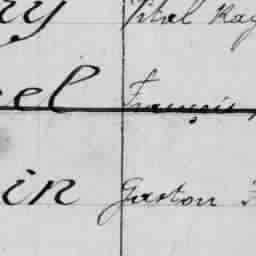 ry Vital Ray
el François
in Gaston